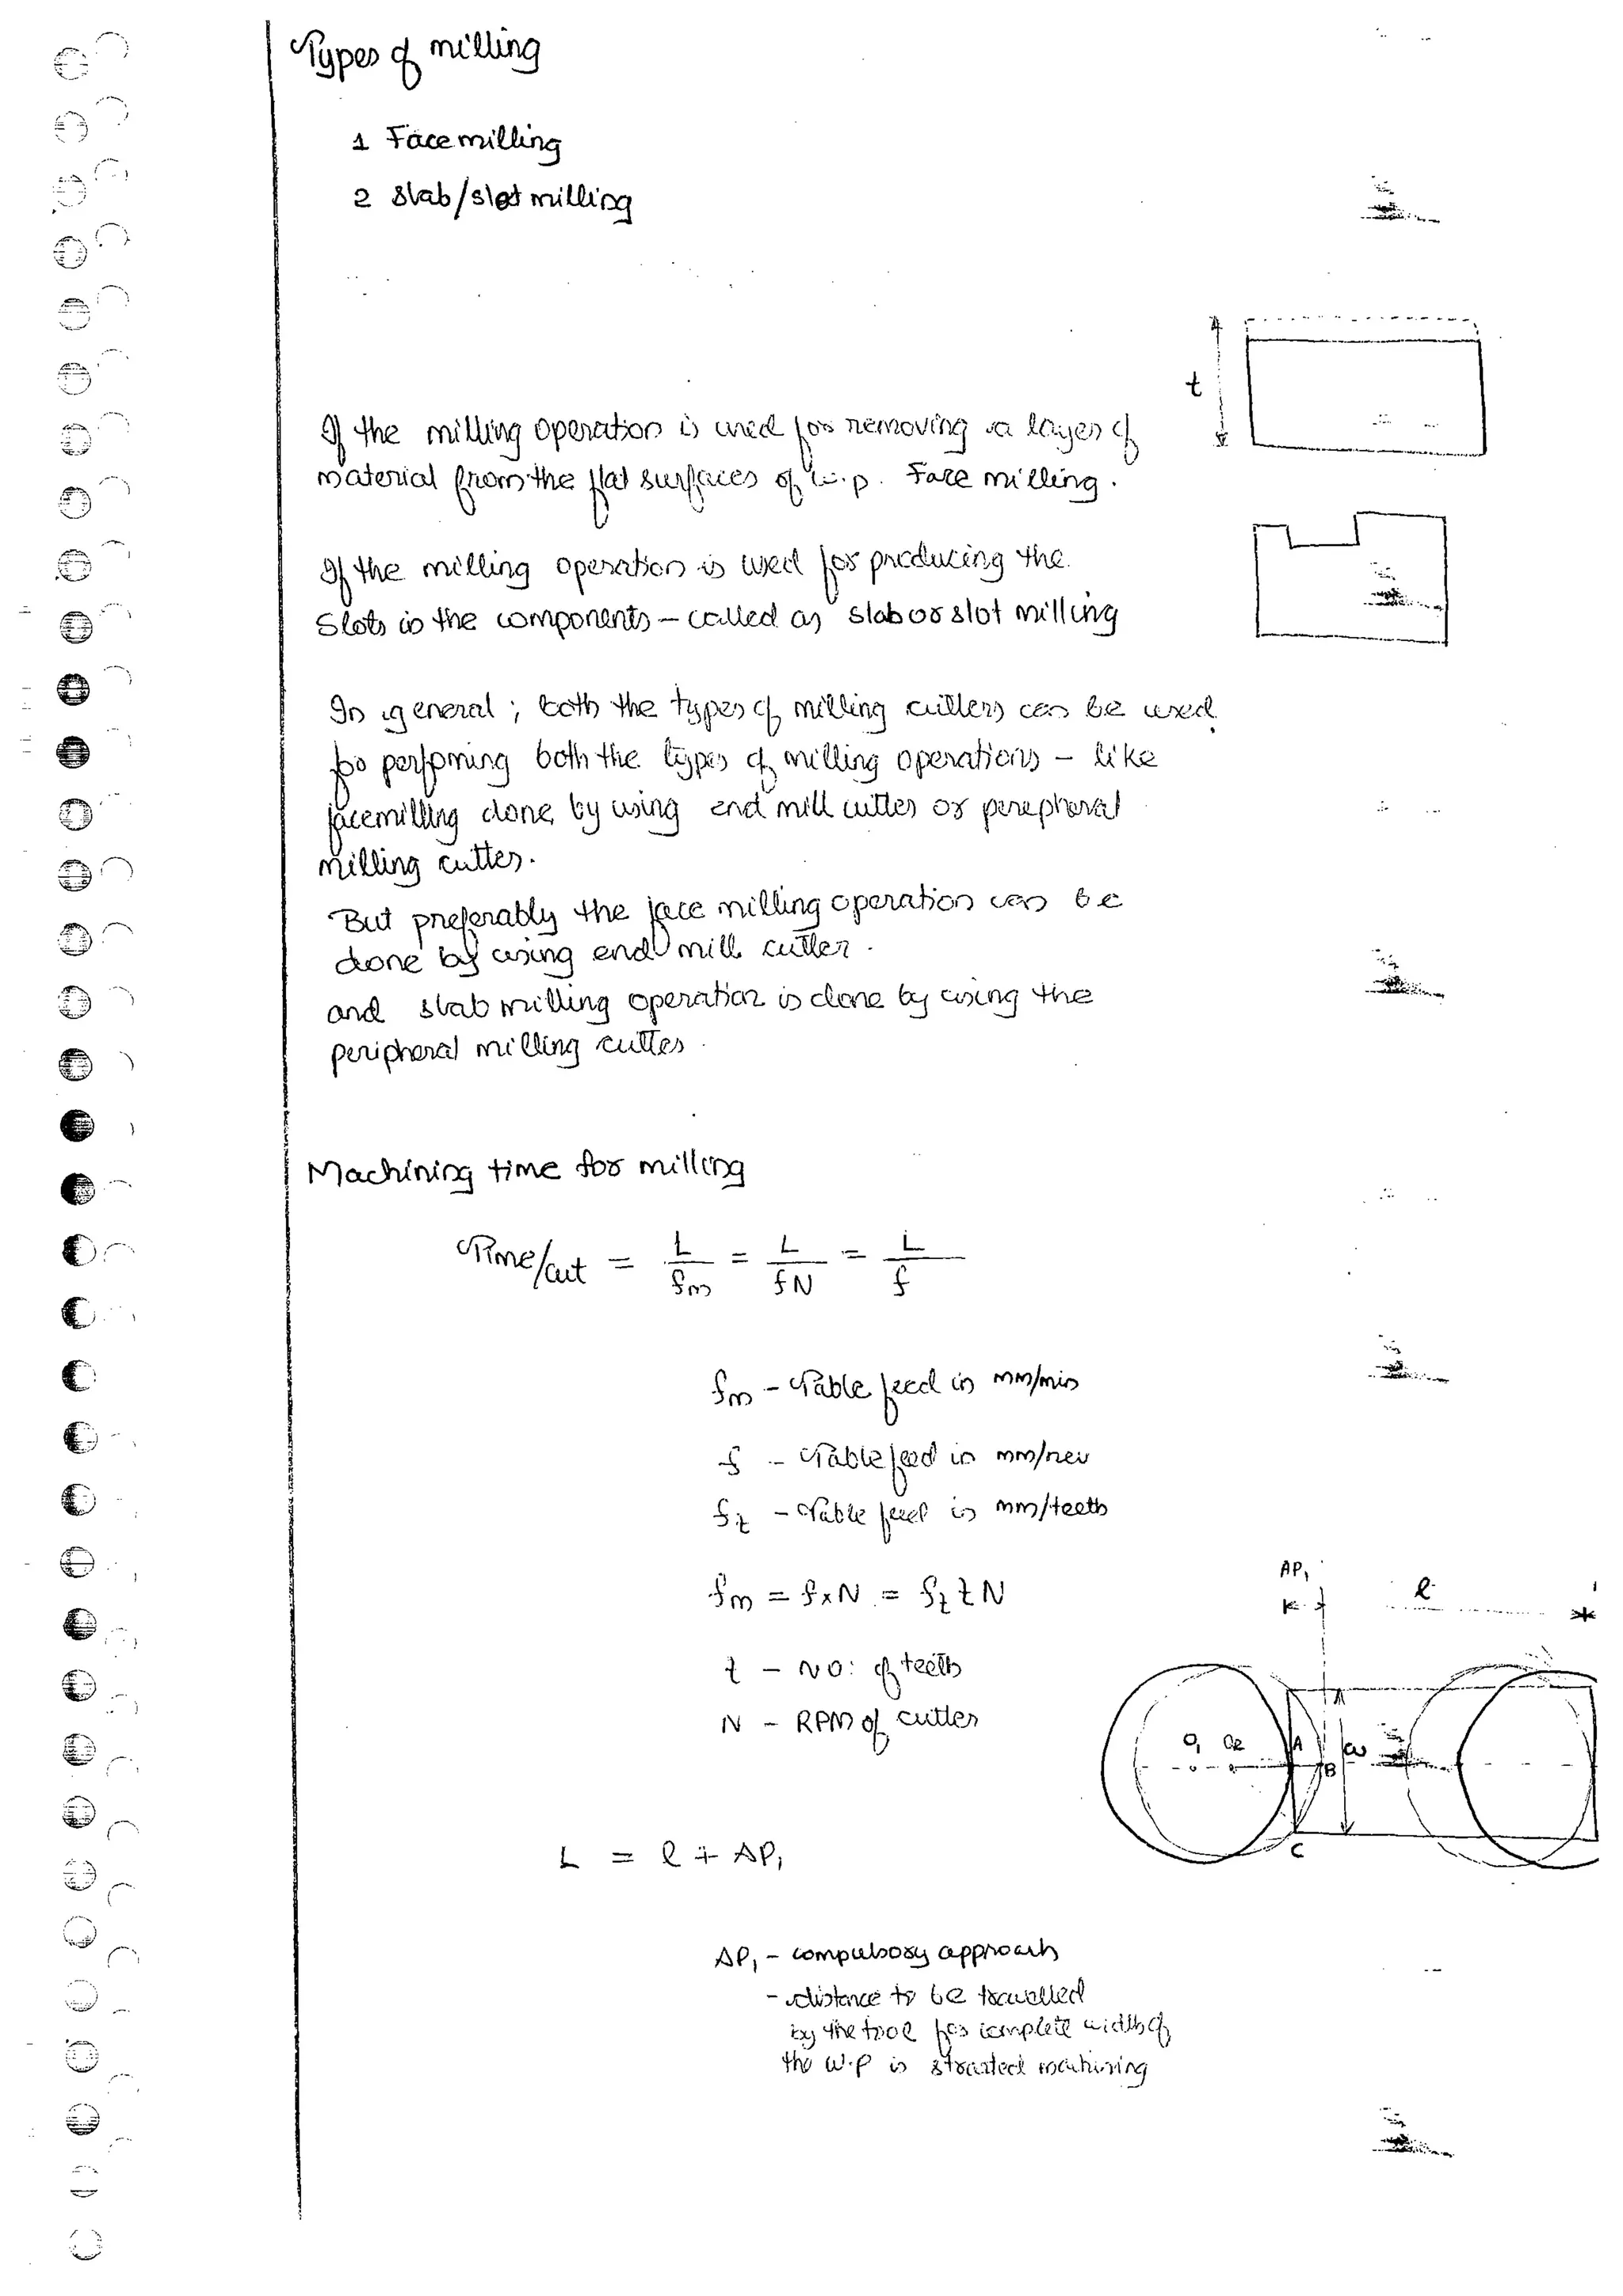 Types of milling
1 Face milling
2 Slab/slot milling
t
If the milling operation is used for removing a layer of
material from the flat surfaces of w.p. Face milling.
If the milling operation is used for producing the
slots in the components – called as slab or slot milling
In general; both the types of milling cutters can be used
for perfoming both the types of milling operations – like
facemilling done by using end mill cutter or perepheral
milling cutter.
But preferably the face milling operation can be
done by using end mill cutter.
and slab milling operation is done by using the
peripheral milling cutter
Machining time for milling
Time/cut = L/fm = L/fN = L/f
fm – Table feed in mm/min
f – Table feed in mm/rev
fz – Table feed in mm/teeth
fm = f×N = fz z N
z – No: of teeth
N – RPM of cutter
AP1
l
O1 O2 A B ω
C
L = l + AP1
AP1 – compulsory approach
– distance to be travelled
by the tool for complete width of
the w.p is strarted machining